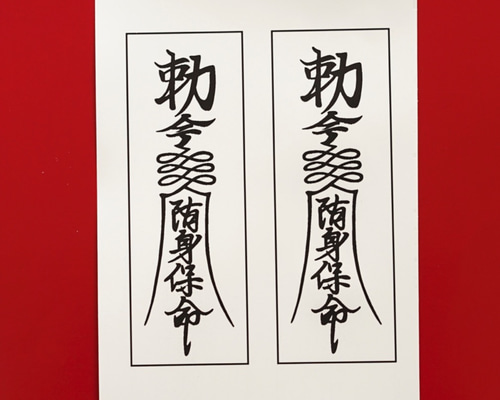 勅令陏身保命
勅令陏身保命